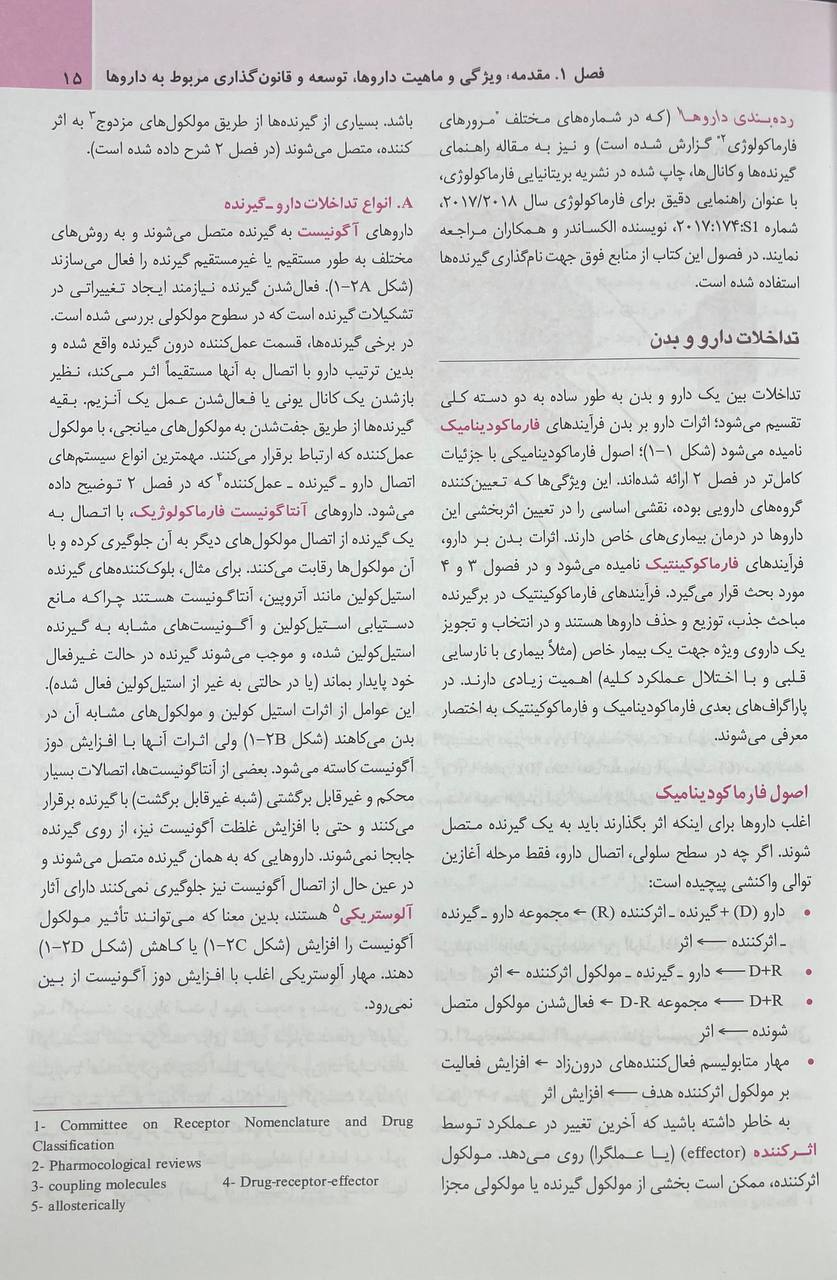 فصل ۱. مقدمه: ویژگی و ماهیت داروها، توسعه و قانون‌گذاری مربوط به داروها ۱۵
رده‌بندی داروها۱ (که در شماره‌های مختلف "مرورهای
فارماکولوژی۲" گزارش شده است) و نیز به مقاله راهنمای
گیرنده‌ها و کانال‌ها، چاپ شده در نشریه بریتانیایی فارماکولوژی،
با عنوان راهنمایی دقیق برای فارماکولوژی سال ۲۰۱۷/۲۰۱۸،
شماره ۲۰۱۷:۱۷۴:S1، نویسنده الکساندر و همکاران مراجعه
نمایند. در فصول این کتاب از منابع فوق جهت نام‌گذاری گیرنده‌ها
استفاده شده است.
تداخلات دارو و بدن
تداخلات بین یک دارو و بدن به طور ساده به دو دسته کلی
تقسیم می‌شود؛ اثرات دارو بر بدن فرآیندهای فارماکودینامیک
نامیده می‌شود (شکل ۱-۱)؛ اصول فارماکودینامیکی با جزئیات
کامل‌تر در فصل ۲ ارائه شده‌اند. این ویژگی‌ها که تعیین‌کننده
گروه‌های دارویی بوده، نقشی اساسی را در تعیین اثربخشی این
داروها در درمان بیماری‌های خاص دارند. اثرات بدن بر دارو،
فرآیندهای فارماکوکینتیک نامیده می‌شود و در فصول ۳ و ۴
مورد بحث قرار می‌گیرد. فرآیندهای فارماکوکینتیک در برگیرنده
مباحث جذب، توزیع و حذف داروها هستند و در انتخاب و تجویز
یک داروی ویژه جهت یک بیمار خاص (مثلاً بیماری با نارسایی
قلبی و با اختلال عملکرد کلیه) اهمیت زیادی دارند. در
پاراگراف‌های بعدی فارماکودینامیک و فارماکوکینتیک به اختصار
معرفی می‌شوند.
اصول فارماکودینامیک
اغلب داروها برای اینکه اثر بگذارند باید به یک گیرنده متصل
شوند. اگر چه در سطح سلولی، اتصال دارو، فقط مرحله آغازین
توالی واکنشی پیچیده است:
• دارو (D) + گیرنده ـ اثرکننده (R) ← مجموعه دارو ـ گیرنده
ـ اثرکننده ← اثر
• D+R ← دارو ـ گیرنده ـ مولکول اثرکننده ← اثر
• D+R ← مجموعه D-R ← فعال‌شدن مولکول متصل
شونده ← اثر
• مهار متابولیسم فعال‌کننده‌های درون‌زاد ← افزایش فعالیت
بر مولکول اثرکننده هدف ← افزایش اثر
به خاطر داشته باشید که آخرین تغییر در عملکرد توسط
اثرکننده (effector) (یا عملگرا) روی می‌دهد. مولکول
اثرکننده، ممکن است بخشی از مولکول گیرنده یا مولکولی مجزا
باشد. بسیاری از گیرنده‌ها از طریق مولکول‌های مزدوج۳ به اثر
کننده، متصل می‌شوند (در فصل ۲ شرح داده شده است).
A. انواع تداخلات دارو ـ گیرنده
داروهای آگونیست به گیرنده متصل می‌شوند و به روش‌های
مختلف به طور مستقیم یا غیرمستقیم گیرنده را فعال می‌سازند
(شکل ۱-۲A). فعال‌شدن گیرنده نیازمند ایجاد تغییراتی در
تشکیلات گیرنده است که در سطوح مولکولی بررسی شده است.
در برخی گیرنده‌ها، قسمت عمل‌کننده درون گیرنده واقع شده و
بدین ترتیب دارو با اتصال به آنها مستقیماً اثر می‌کند، نظیر
بازشدن یک کانال یونی یا فعال‌شدن عمل یک آنزیم. بقیه
گیرنده‌ها از طریق جفت‌شدن به مولکول‌های میانجی، با مولکول
عمل‌کننده که ارتباط برقرار می‌کنند. مهمترین انواع سیستم‌های
اتصال دارو ـ گیرنده ـ عمل‌کننده۴ که در فصل ۲ توضیح داده
می‌شود. داروهای آنتاگونیست فارماکولوژیک، با اتصال به
یک گیرنده از اتصال مولکول‌های دیگر به آن جلوگیری کرده و با
آن مولکول‌ها رقابت می‌کنند. برای مثال، بلوک‌کننده‌های گیرنده
استیل‌کولین مانند آتروپین، آنتاگونیست هستند چراکه مانع
دستیابی استیل‌کولین و آگونیست‌های مشابه به گیرنده
استیل‌کولین شده، و موجب می‌شوند گیرنده در حالت غیرفعال
خود پایدار بماند (یا در حالتی به غیر از استیل‌کولین فعال شده).
این عوامل از اثرات استیل کولین و مولکول‌های مشابه آن در
بدن می‌کاهند (شکل ۱-۲B) ولی اثرات آنها با افزایش دوز
آگونیست کاسته می‌شود. بعضی از آنتاگونیست‌ها، اتصالات بسیار
محکم و غیرقابل برگشتی (شبه غیرقابل برگشت) با گیرنده برقرار
می‌کنند و حتی با افزایش غلظت آگونیست نیز، از روی گیرنده
جابجا نمی‌شوند. داروهایی که به همان گیرنده متصل می‌شوند و
در عین حال از اتصال آگونیست نیز جلوگیری نمی‌کنند دارای آثار
آلوستریکی۵ هستند، بدین معنا که می‌توانند تأثیر مولکول
آگونیست را افزایش (شکل ۱-۲C) یا کاهش (شکل ۱-۲D)
دهند. مهار آلوستریکی اغلب با افزایش دوز آگونیست از بین
نمی‌رود.
1- Committee on Receptor Nomenclature and Drug
Classification
2- Pharmocological reviews
3- coupling molecules 4- Drug-receptor-effector
5- allosterically